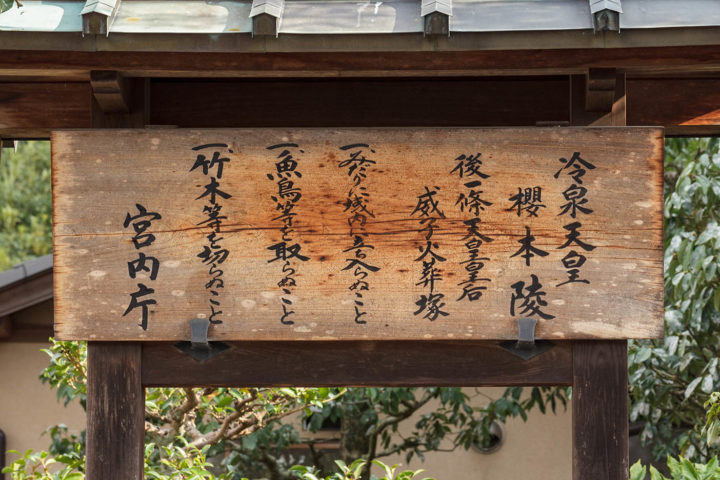 冷泉天皇
櫻本陵
後一條天皇皇后
威子火葬塚
一みだりに域内に立ち入らぬこと
一魚鳥等を取らぬこと
一竹木等を切らぬこと
宮内庁